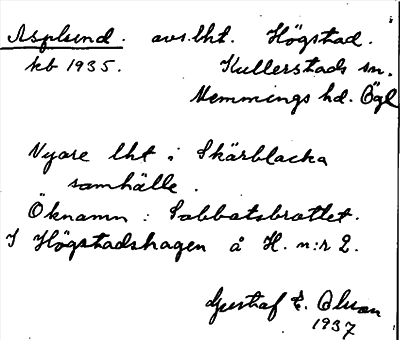 Asplund. avs.lht. Högstad.
kb 1935. Kullerstads sn.
Memmings hd. Ögl
Nyare lht i Skärblacka
samhälle.
Öknamn: Sabbatsbrottet.
I Högstadshagen å H. n:r 2.
Gustaf E. Olson
1937